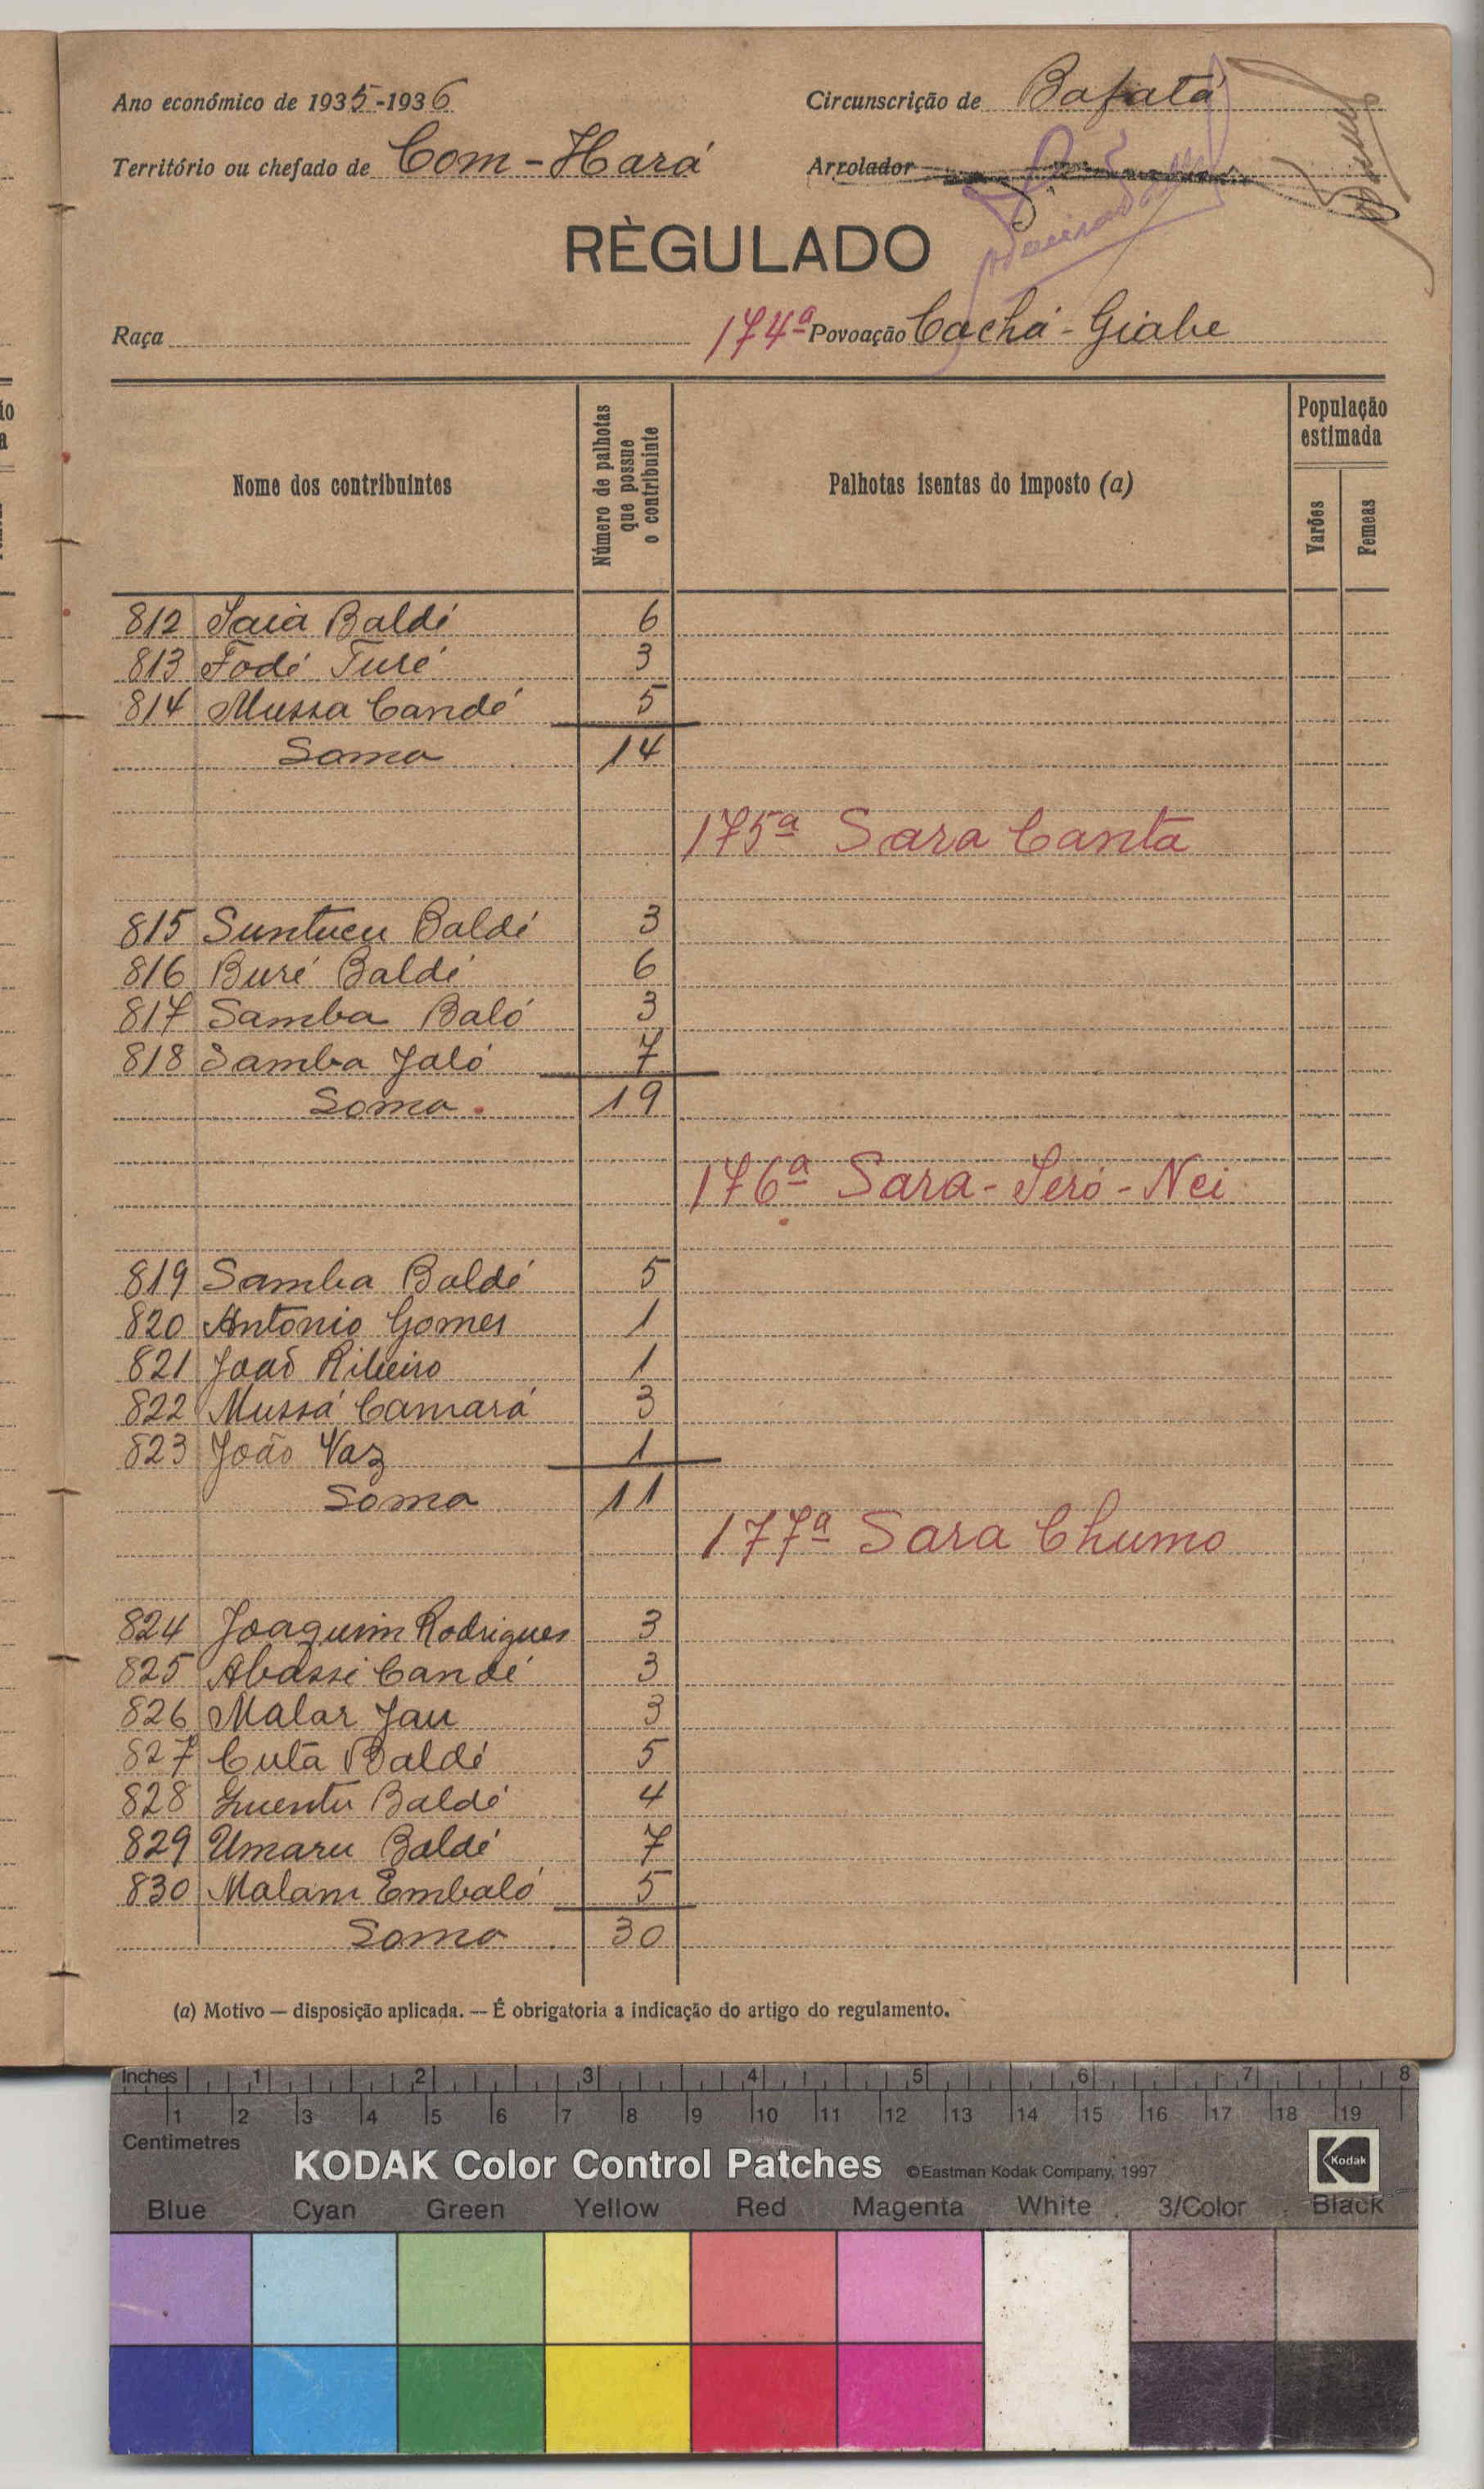 Ano económico de 1935-1936
Circunscrição de Bafatá
Território ou chefado de Com-Hará
Arrolador
RÈGULADO
Raça
174ª Povoação Cachá-Giabe
Nome dos contribuintes
Número de palhotas que possue o contribuinte
Palhotas isentas do imposto (a)
População estimada
Varões
Femeas
812 Saiá Baldé 6
813 Fodé Turé 3
814 Mussa Candé 5
Soma 14
175ª Sara Canta
815 Suntucu Baldé 3
816 Buré Baldé 6
817 Samba Baló 3
818 Samba Jaló 7
Soma 19
176ª Sara-Seró-Nei
819 Samba Baldé 5
820 António Gomes 1
821 João Ribeiro 1
822 Mussá Camará 3
823 João Vaz 1
Soma 11
177ª Sara Chumo
824 Joaquim Rodrigues 3
825 Abassi Candé 3
826 Malar Jau 3
827 Cuta Baldé 5
828 Quentu Baldé 4
829 Umaru Baldé 7
830 Malam Embaló 5
Soma 30
(a) Motivo — disposição aplicada. — É obrigatoria a indicação do artigo do regulamento.
Inches 1 2 3 4 5 6 7 8
1 2 3 4 5 6 7 8 9 10 11 12 13 14 15 16 17 18 19
Centimetres
KODAK Color Control Patches ©Eastman Kodak Company, 1997 Kodak
Blue Cyan Green Yellow Red Magenta White 3/Color Black